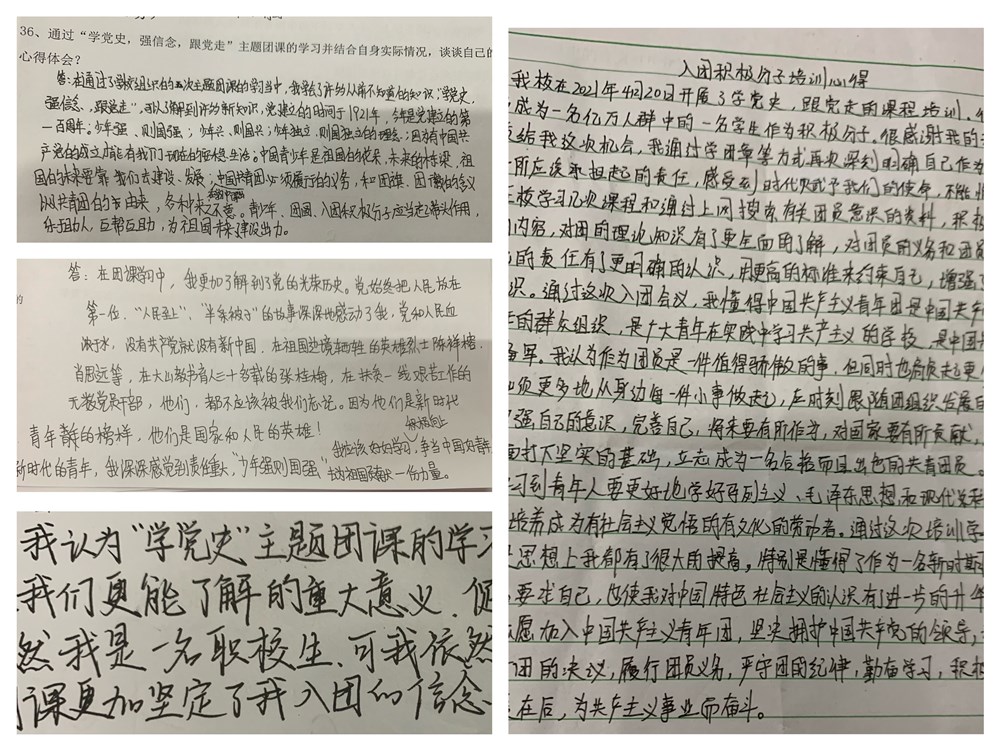 36、通过“学党史，强信念，跟党走”主题团课的学习并结合自身实际情况，谈谈自己的
心得体会？
答：在通过了学校组织的五次主题团课的学习当中，我学了许多以前不知道的知识，“学党史，
强信念、跟党走”，可以了解到许多新知识，党建立的时间于1921年，今年是党建立的第
一百周年。少年强、则国强；少年兴、则国兴；少年独立、则国独立的理念；因为有中国共
产党的成立才能有我们现在的生活。中国青少年是祖国的未来，未来的栋梁，祖
国的未来要靠我们去建设、发展；中国共青团必须履行的义务，和团旗、团徽的含义
以及共青团的由来，各种。青少年、团员、入团积极分子应当起带头作用，
乐于助人，互帮互助，为祖国未来建设出力。
答：在团课学习中，我更加了解到了党的光荣历史。党始终把人民放在
第一位、“人民至上”、“半条被子”的故事深深地感动了我，党和人民血
浓于水，没有共产党就没有新中国。在祖国边境牺牲的英雄烈士陈祥榕、
肖思远等，在大山教书育人三十多载的张桂梅，在扶贫一线艰苦工作的
无数党员干部，他们，都不应该被我们忘记。因为他们是新时代
青年的榜样，他们是国家和人民的英雄！
我应该好好学习，争当中国好青年
新时代的青年，我深深感觉到责任重大，“少年强则国强”
为祖国贡献一份力量。
我认为“学党史”主题团课的学习
我们更能了解的重大意义、促
然我是一名职校生、可我依然
课更加坚定了我入团的信念
入团积极分子培训心得
我校在2021年4月20日开展了学党史，跟党走的课程培训。
成为一名亿万人群中的一名学生作为积极分子。很感谢我的
给我这次机会，我通过学团章等方式再次深刻明确自己作为
所应该承担起的责任，感受到时代赋予我们的使命，不能
校学习几次课程和通过上网搜索有关团员意识的资料，积极
内容，对团的理论知识有了更全面的了解，对团员的义务和团员
的责任有了更明确的认识，用更高的标准来约束自己，增强了
识。通过这次入团会议，我懂得中国共产主义青年团是中国共产
的群众组织，是广大青年在实践中学习共产主义的学校，是中国
备军。我认为作为团员是一件值得骄傲的事，但同时也肩负起更
须更多地从身边每一件小事做起，应时刻跟随团组织发展
强自己的意识，完善自己，将来要有所作为，对国家要有所贡献，
面打下坚实的基础，立志成为一名合格而且出色的共青团员。
习到青年人要更好地学好马列主义、毛泽东思想和现代
培养成为有社会主义觉悟的有文化的劳动者。通过这次培训学
思想上我都有了很大的提高，特别是懂得了作为一名新时期
要求自己，也使我对中国特色社会主义的认识有了进一步的
愿加入中国共产主义青年团，坚决拥护中国共产党的领导，
团的决议，履行团员义务，严守团的纪律，勤奋学习，积极
在后，为共产主义事业而奋斗。